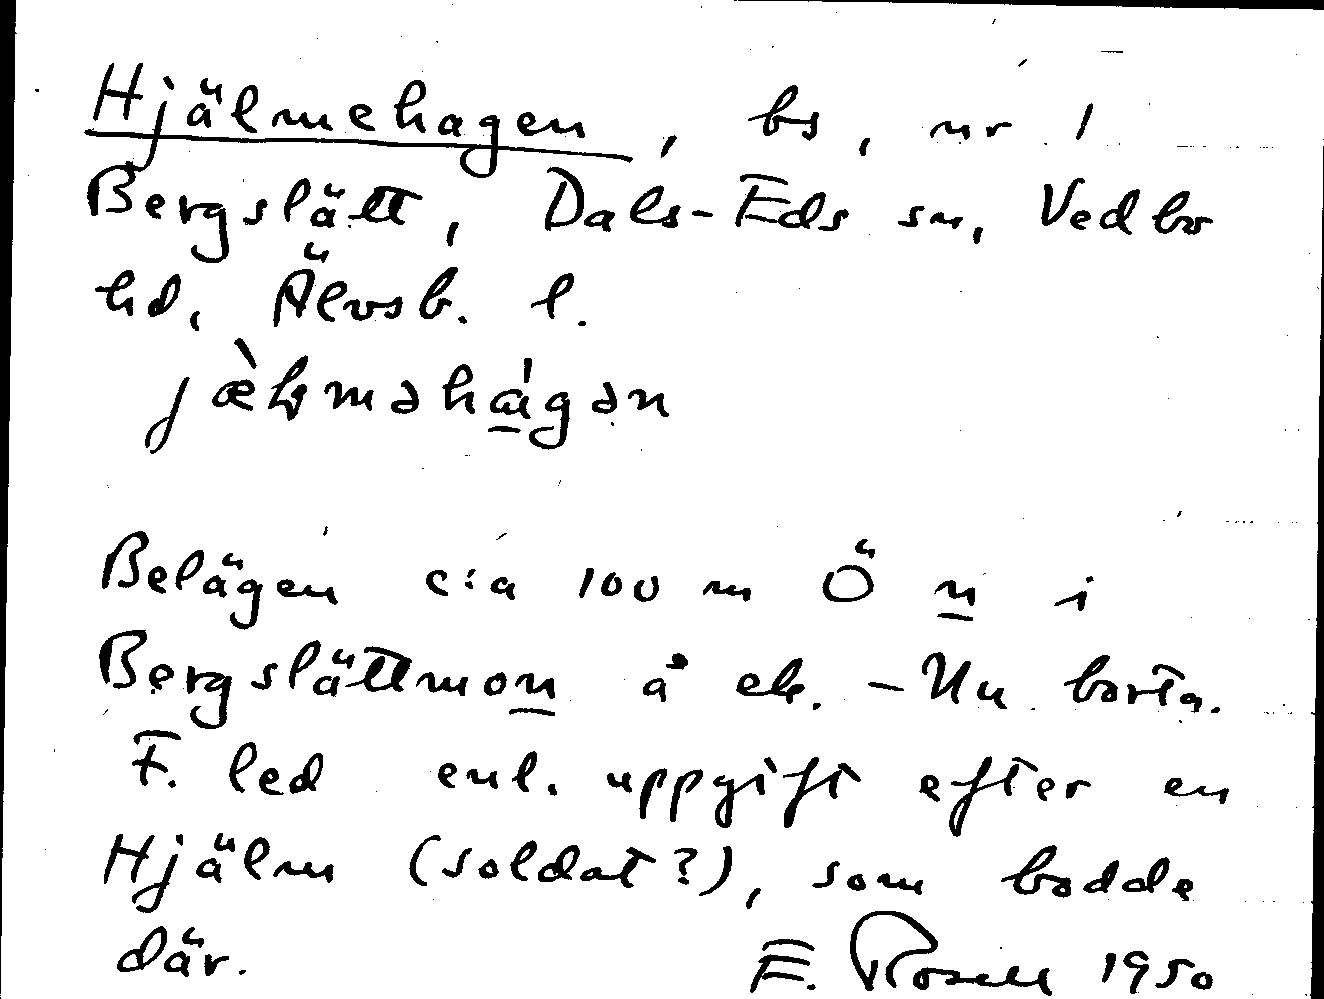 Hjälmehagen, bs, nr 1
Bergslätt, Dals-Eds sn, Vedbo
hd, Älvsb. l.
Belägen c:a 100 m Ö n i
Bergslättmon å ek. - Nu borta.
F. led enl. uppgift efter en
Hjälm (soldat?), som bodde
där. E. Rosell 1950